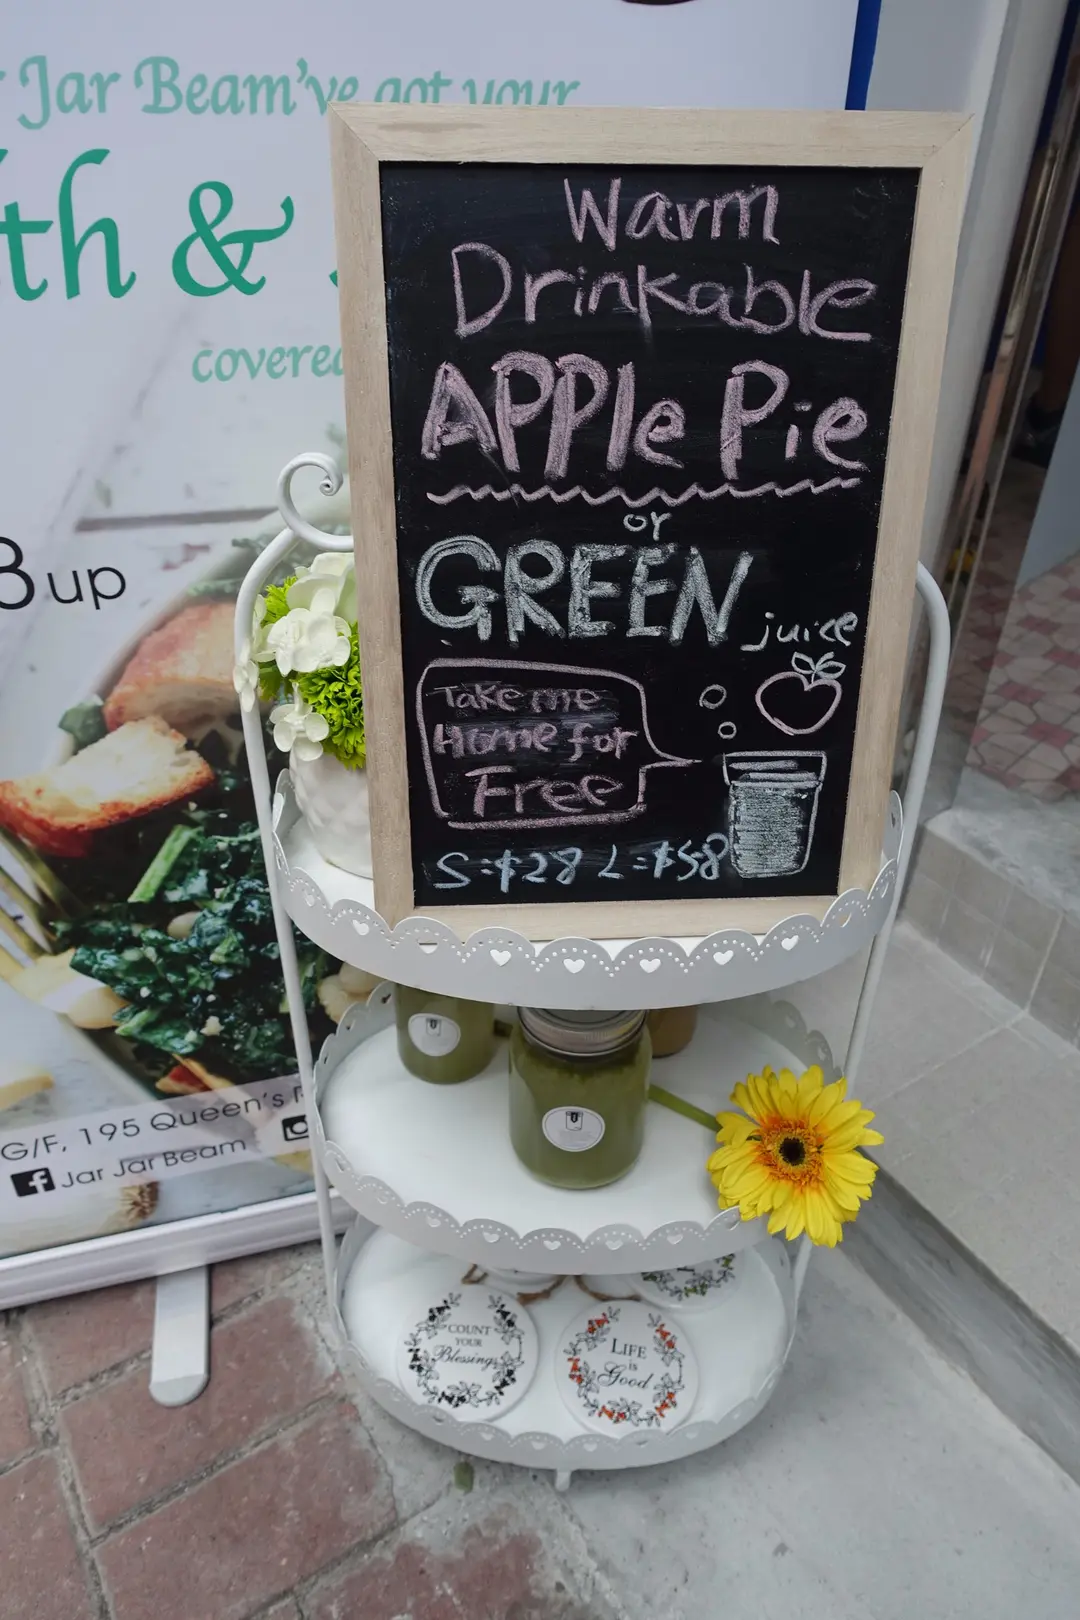 Jar Beam've got your
th &
covered
8 up
G/F, 195 Queen's
Jar Jar Beam
Warm
Drinkable
APPle Pie
or
GREEN
juice
Take me
Home for
Free
S=$28 L=$58
COUNT
YOUR
Blessings
LIFE
is
Good